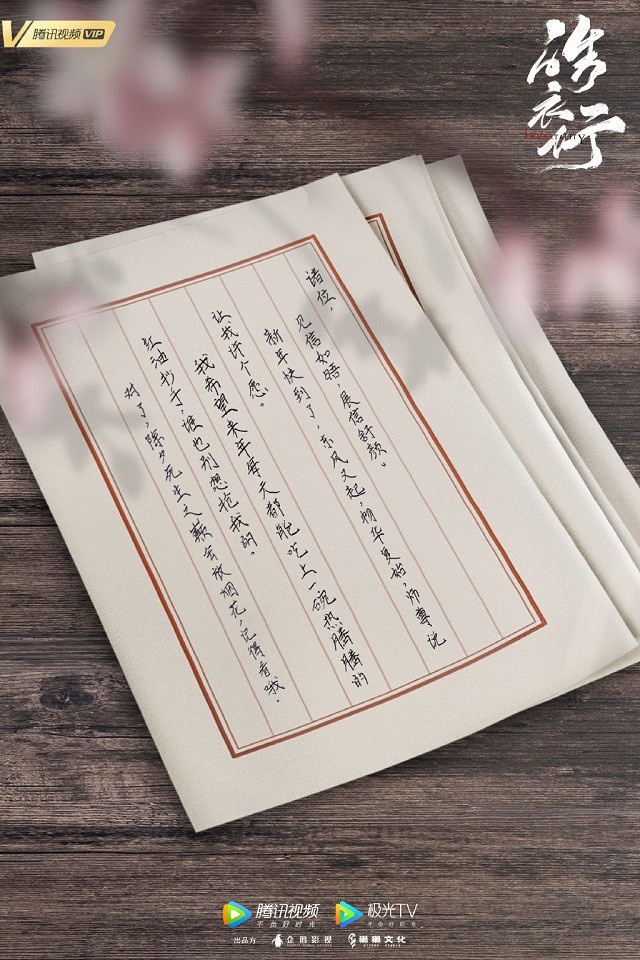 腾讯视频 VIP
皓衣行
诸位,
见信如晤,展信舒颜。
新年快到了,东风又起,物华复始,师尊说
让我许个愿。
我希望来年每天都能吃上一碗热腾腾的
红油抄手,谁也别想抢我的。
对了,除夕死生之巅会放烟花,记得看哦。
腾讯视频
不负好时光
极光TV
出品方 企鹅影视